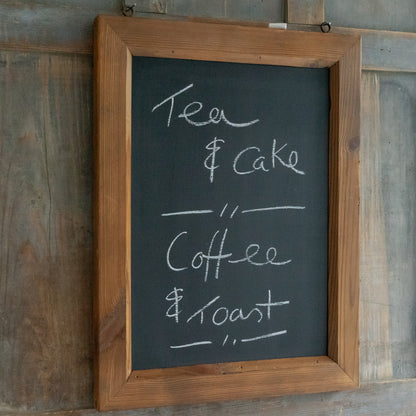 Tea
& Cake
Coffee
& Toast